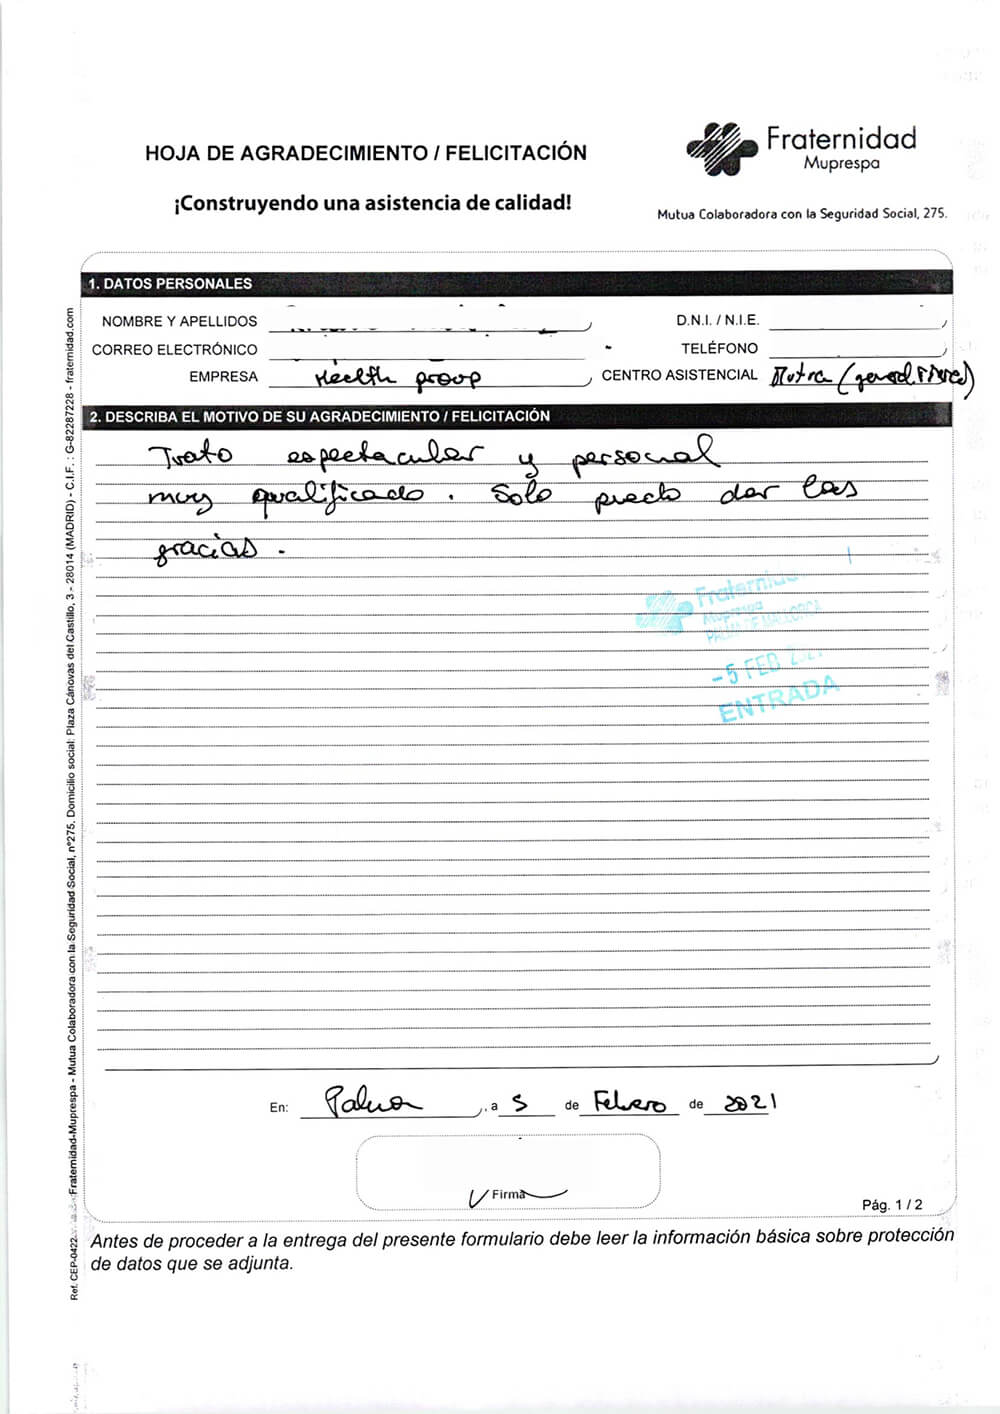 HOJA DE AGRADECIMIENTO / FELICITACIÓN
Fraternidad
Muprespa
¡Construyendo una asistencia de calidad!
Mutua Colaboradora con la Seguridad Social, 275.
1. DATOS PERSONALES
NOMBRE Y APELLIDOS
D.N.I. / N.I.E.
CORREO ELECTRÓNICO
TELÉFONO
EMPRESA Health group CENTRO ASISTENCIAL Mutua
2. DESCRIBA EL MOTIVO DE SU AGRADECIMIENTO / FELICITACIÓN
Trato espectacular y personal
muy qualificado. Solo puedo dar las
gracias.
Fraternidad
Muprespa
PALMA DE MALLORCA
- 5 FEB 2021
ENTRADA
En: Palma, a 5 de Febrero de 2021
Firma
Pág. 1 / 2
Antes de proceder a la entrega del presente formulario debe leer la información básica sobre protección
de datos que se adjunta.
Ref. CEP-0422 Fraternidad-Muprespa - Mutua Colaboradora con la Seguridad Social, nº275. Domicilio social: Plaza Cánovas del Castillo, 3 - 28014 (MADRID) - C.I.F. : G-82287228 - fraternidad.com